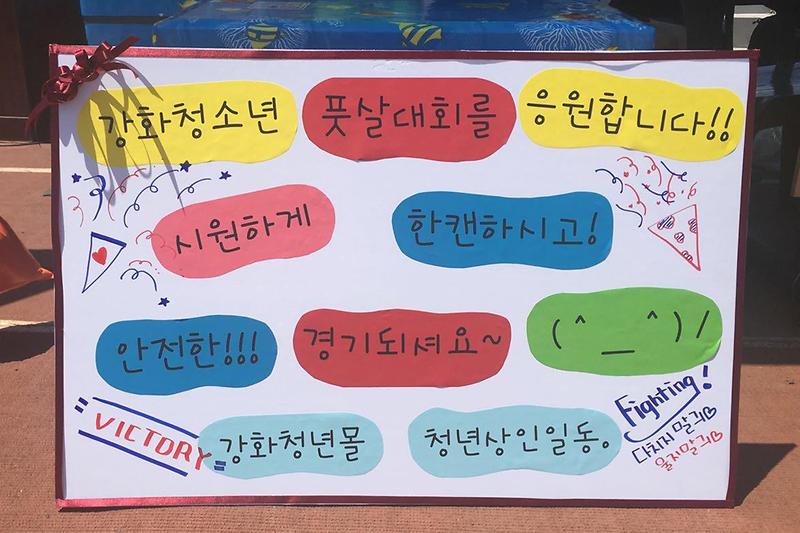 강화청소년 풋살대회를 응원합니다!!
시원하게 한캔하시고!
안전한!!! 경기되셔요~ (^ __ ^)/
VICTORY 강화청년몰 청년상인일동.
Fighting!
다치지말긔♡
울지말긔♡